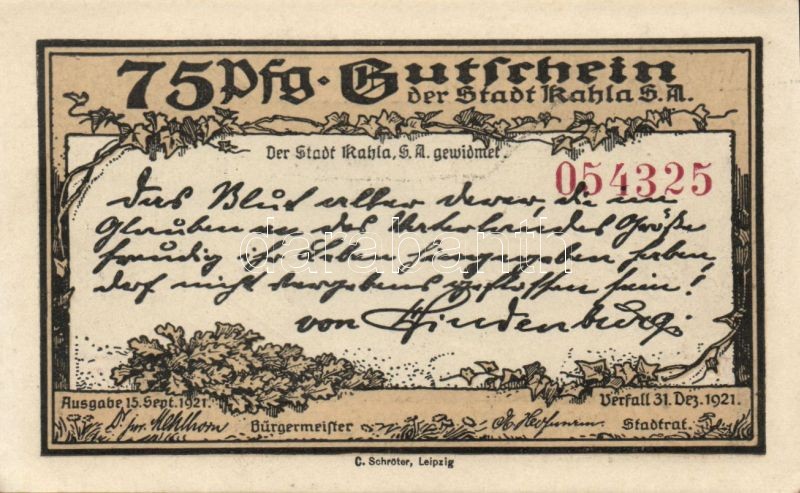 75 Pfg. Gutschein
der Stadt Kahla S.A.
Der Stadt Kahla, S.A. gewidmet
054325
Das Blut aller derer, die im
Glauben an des Vaterlandes Größe
freudig ihr Leben hingegeben haben,
darf nicht vergebens geflossen sein!
von Hindenburg.
darabanth
Ausgabe 15. Sept. 1921.
Verfall 31. Dez. 1921.
Bürgermeister
Stadtrat.
C. Schröter, Leipzig